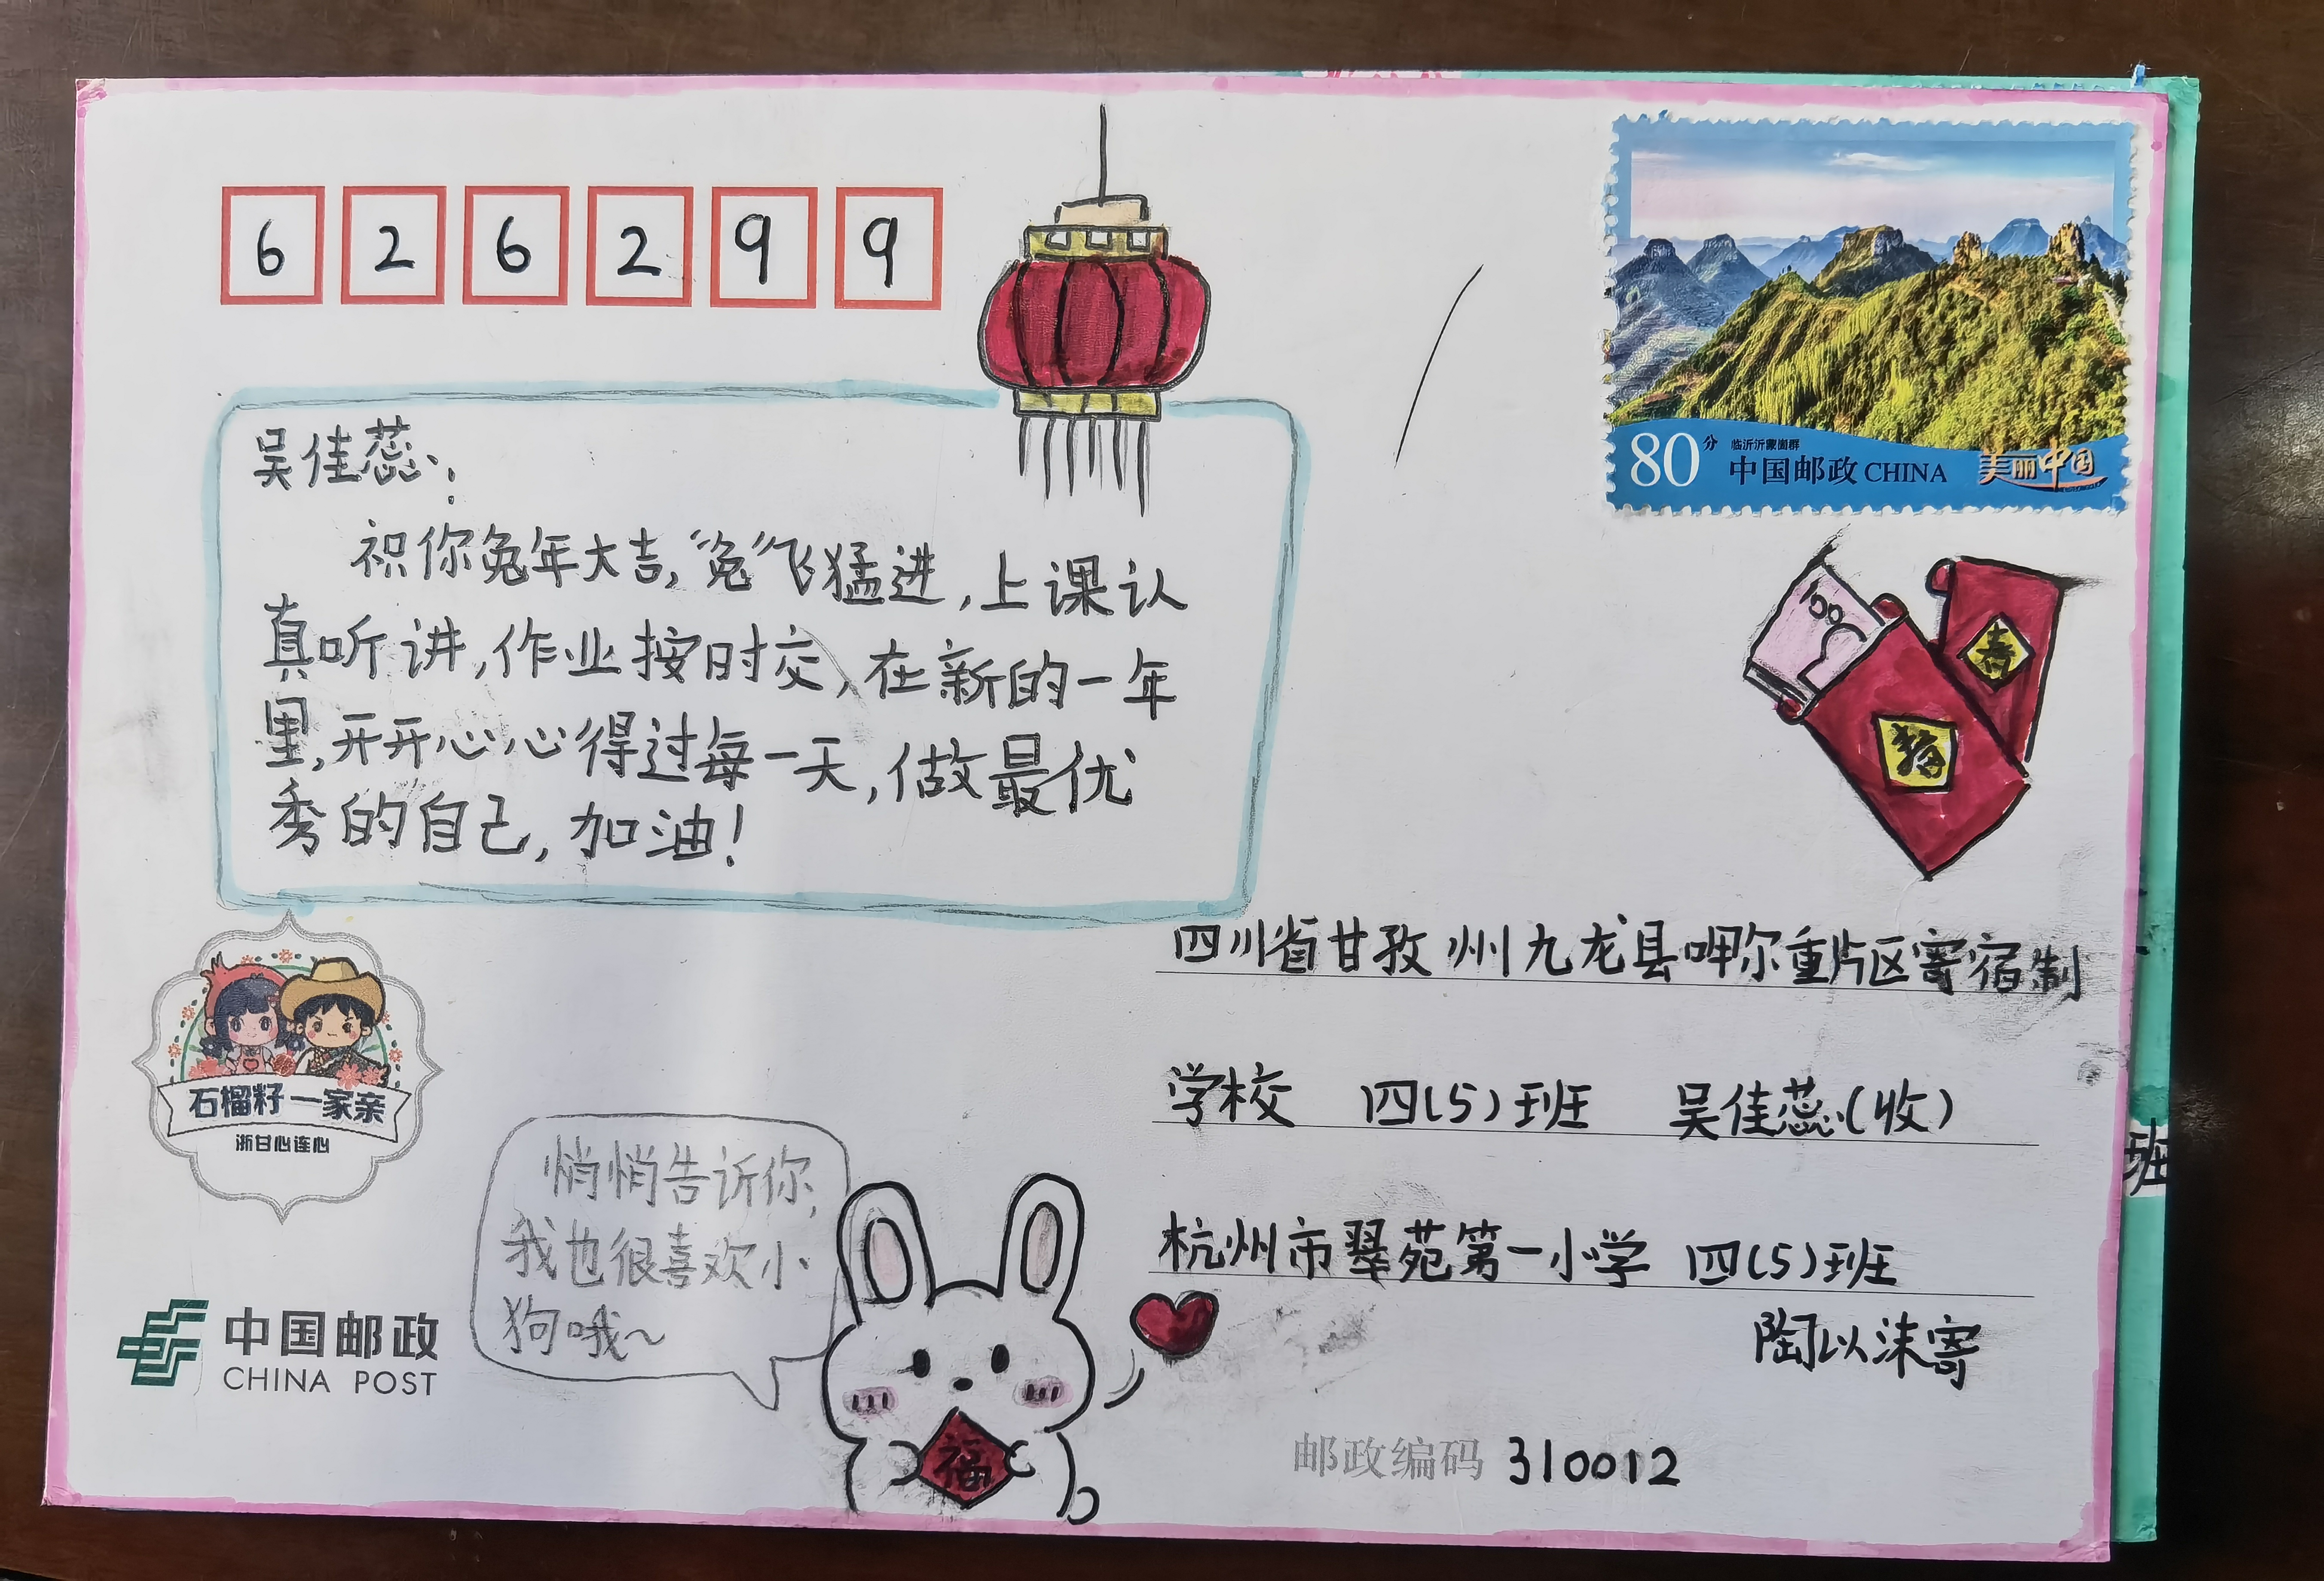 626299
吴佳蕊：
祝你兔年大吉，“兔”飞猛进，上课认
真听讲，作业按时交，在新的一年
里，开开心心得过每一天，做最优
秀的自己，加油！
80分
临沂沂蒙崮群
中国邮政 CHINA
美丽中国
100
春
福
四川省甘孜州九龙县呷尔重片区寄宿制
学校 四(5)班 吴佳蕊(收)
班
杭州市翠苑第一小学 四(5)班
陶以沫寄
邮政编码 310012
石榴籽一家亲
浙甘心连心
悄悄告诉你，
我也很喜欢小
狗哦~
福
中国邮政
CHINA POST